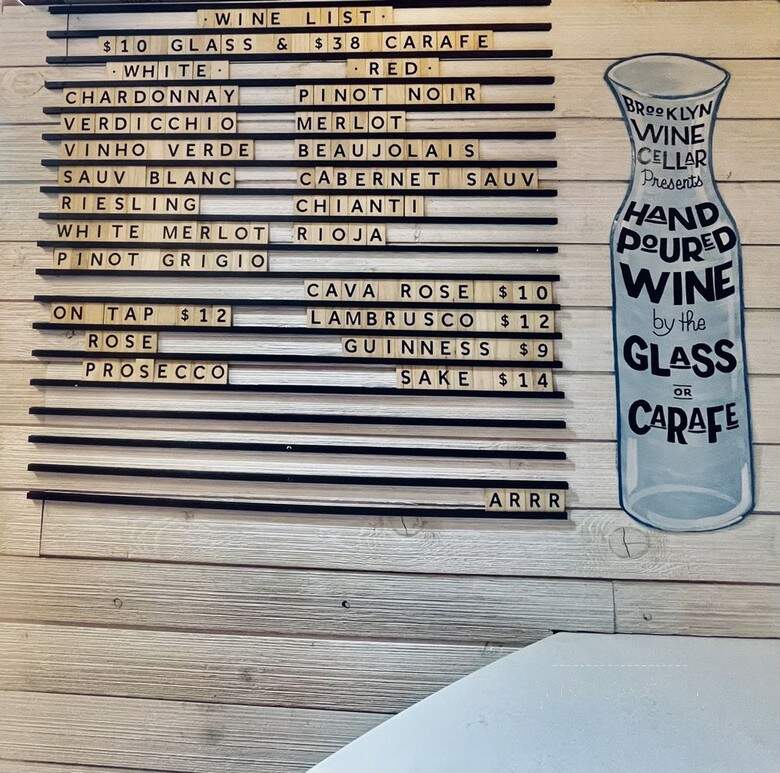 ·WINE LIST·
$10 GLASS & $38 CARAFE
·WHITE· ·RED·
CHARDONNAY PINOT NOIR
VERDICCHIO MERLOT
VINHO VERDE BEAUJOLAIS
SAUV BLANC CABERNET SAUV
RIESLING CHIANTI
WHITE MERLOT RIOJA
PINOT GRIGIO
CAVA ROSE $10
ON TAP $12 LAMBRUSCO $12
ROSE GUINNESS $9
PROSECCO SAKE $14
ARRR
BROOKLYN
WINE
CELLAR
Presents
HAND
POURED
WINE
by the
GLASS
OR
CARAFE